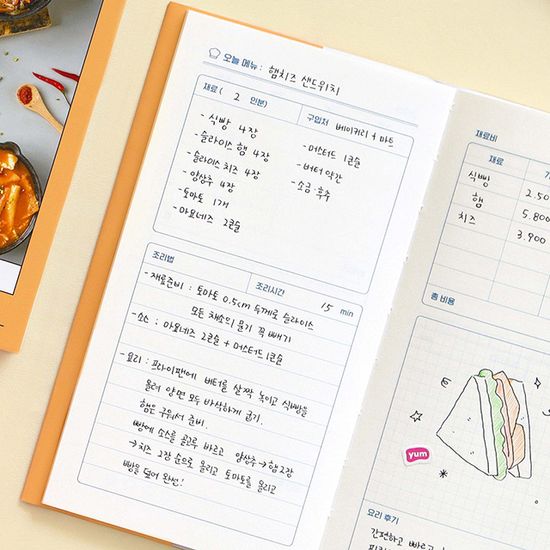 오늘 메뉴 : 햄치즈 샌드위치
재료 ( 2 인분)
구입처 베이커리 + 마트
- 식빵 4장
- 슬라이스 햄 4장
- 슬라이스 치즈 4장
- 양상추 4장
- 토마토 1개
- 마요네즈 2큰술
- 머스터드 1큰술
- 버터 약간
- 소금·후추
조리법
조리시간 15 min
- 재료준비 : 토마토 0.5cm 두께로 슬라이스
모든 채소의 물기 꼭 빼기
- 소스 : 마요네즈 2큰술 + 머스터드 1큰술
- 요리 : 프라이팬에 버터를 살짝 녹이고 식빵을
올려 양면 모두 바삭하게 굽기.
햄도 구워서 준비.
빵에 소스를 골고루 바르고 양상추 → 햄 2장
→ 치즈 2장 순으로 올리고 토마토를 올리고
빵을 덮어 완성!
재료비
재료
식빵 2.50
햄 5.800
치즈 3.900
총 비용
yum
요리 후기
간편하고 빠르고